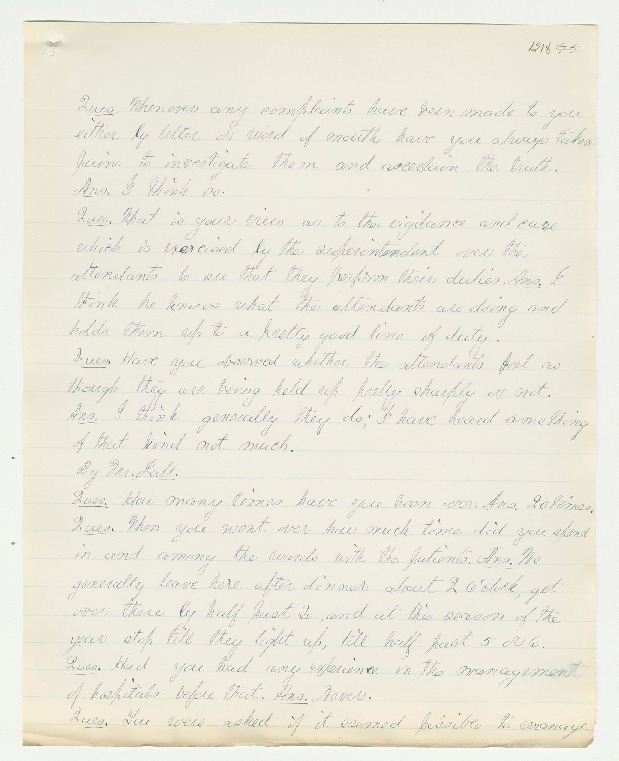 1218 75
Ques. Whenever any complaints have been made to you
either by letter or word of mouth have you always taken
pains to investigate them and ascertain the truth.
Ans. I think so.
Ques. What is your view as to the vigilance and care
which is exercised by the superintendent over the
attendants to see that they perform their duties. Ans. I
think he knows what the attendants are doing and
holds them up to a pretty good line of duty.
Ques. Have you observed whether the attendants feel as
though they are being held up pretty sharply or not.
Ans. I think generally they do; I have heard something
of that kind not much.
By Mr.
Ques. How many times have you been over Ans. 20 times.
Ques. When you went over how much time did you spend
in and among the wards with the patients. Ans. We
generally leave here after dinner about 2 o'clock, get
over there by half past 2, and at this season of the
year stop till they light up, till half past 5 or 6.
Ques. Had you had any experience in the management
of hospitals before that. Ans. Never.
Ques. You were asked if it seemed possible to manage